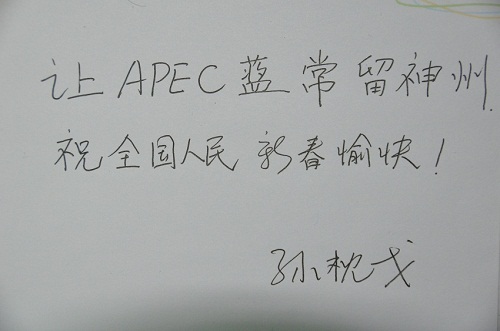 让APEC蓝常留神州
祝全国人民新春愉快！
孙枕戈